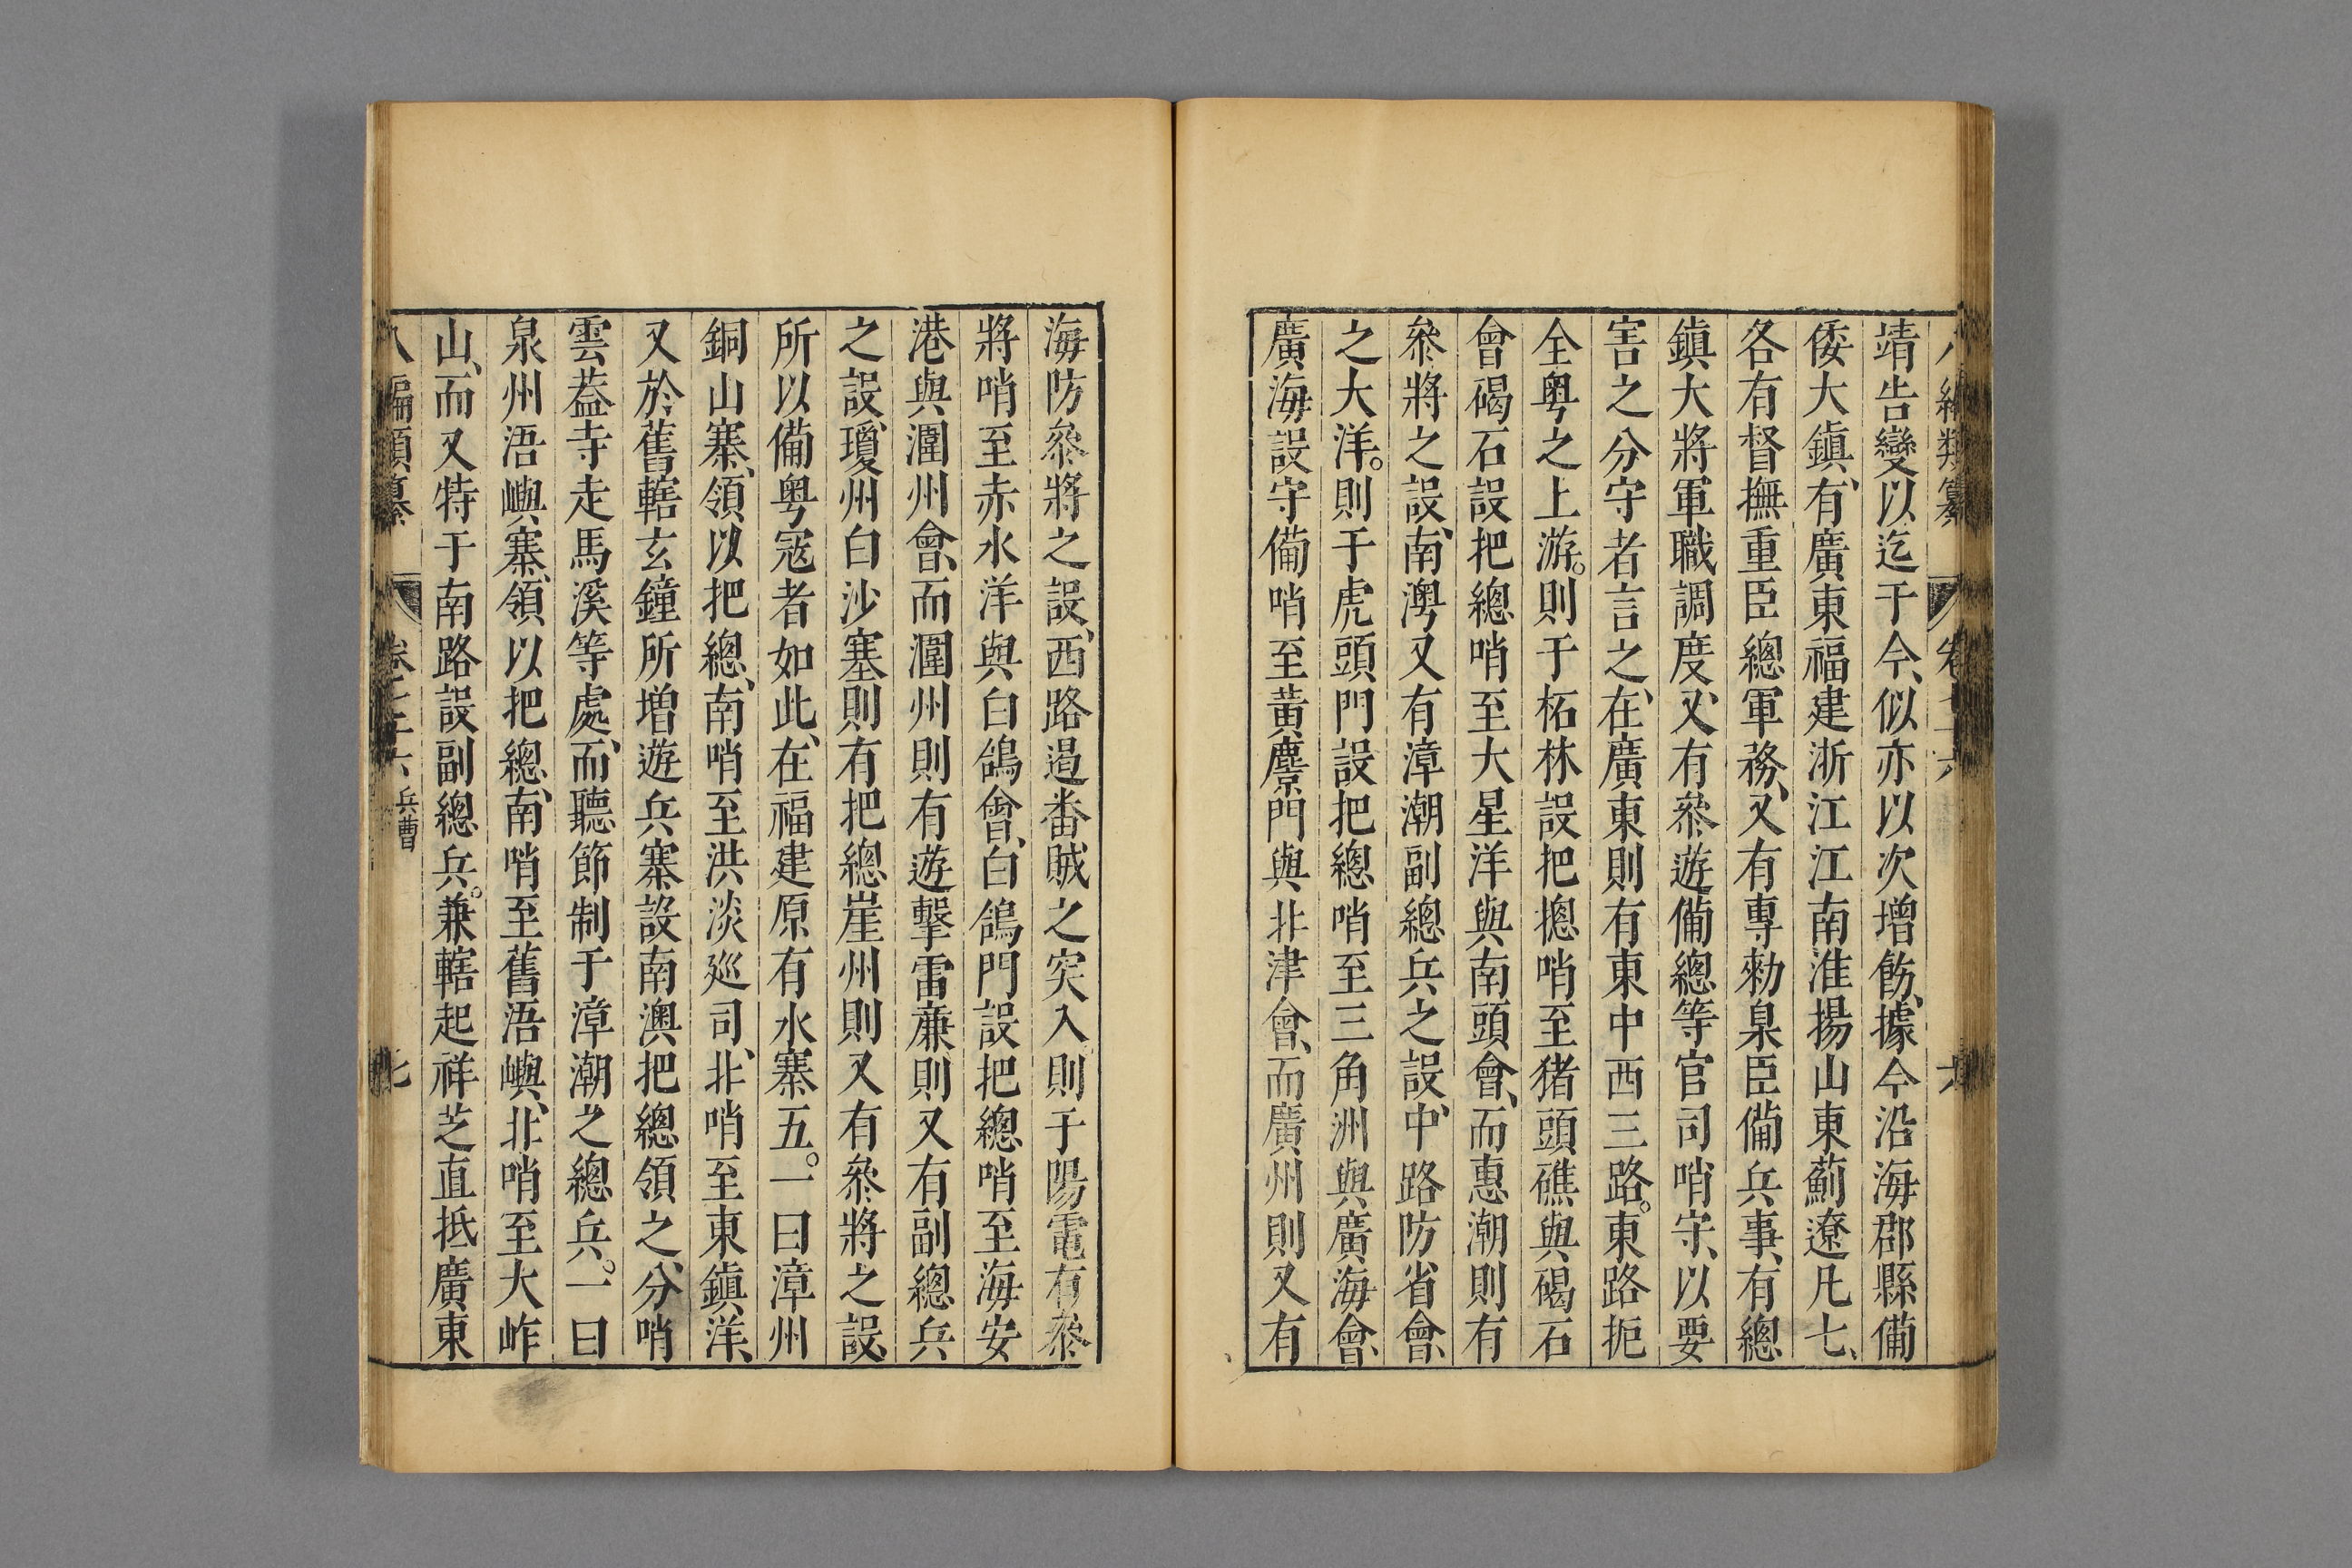 靖告變以迄于今、似亦以次增飭、據今沿海郡縣備
倭大鎮、有廣東福建浙江江南淮揚山東薊遼凡七、
各有督撫重臣總軍務、又有專勑臬臣備兵事、有總
鎮大將軍職調度、又有叅遊備總等官司哨守、以要
害之分守者言之、在廣東則有東中西三路。東路扼
全粤之上游。則于柘林設把摠哨至猪頭礁與碣石
會碣石設把總哨至大星洋與南頭會、而惠潮則有
叅將之設、南澳又有漳潮副總兵之設、中路防省會、
之大洋。則于虎頭門設把總哨至三角洲與廣海會、
廣海設守備哨至黃麖門與北津會、而廣州則又有
海防叅將之設、西路遏番賊之突入則于陽電有叅
將哨至赤水洋與白鴿會、白鴿門設把總哨至海安
港與潿州會、而潿州則有遊擊雷亷則又有副總兵
之設、瓊州白沙塞則有把總崖州則又有叅將之設、
所以備粤寇者如此、在福建原有水寨五。一曰漳州
銅山寨、領以把總、南哨至洪淡廵司、北哨至東鎮洋、
又於舊轄玄鐘所增遊兵寨設南澳把總領之、分哨
雲葢寺走馬溪等處、而聽節制于漳潮之總兵。一曰
泉州浯嶼寨、領以把總、南哨至舊浯嶼、北哨至大岞
山、而又特于南路設副總兵。兼轄起祥芝直抵廣東
八編類纂 卷七十六 兵曹 七